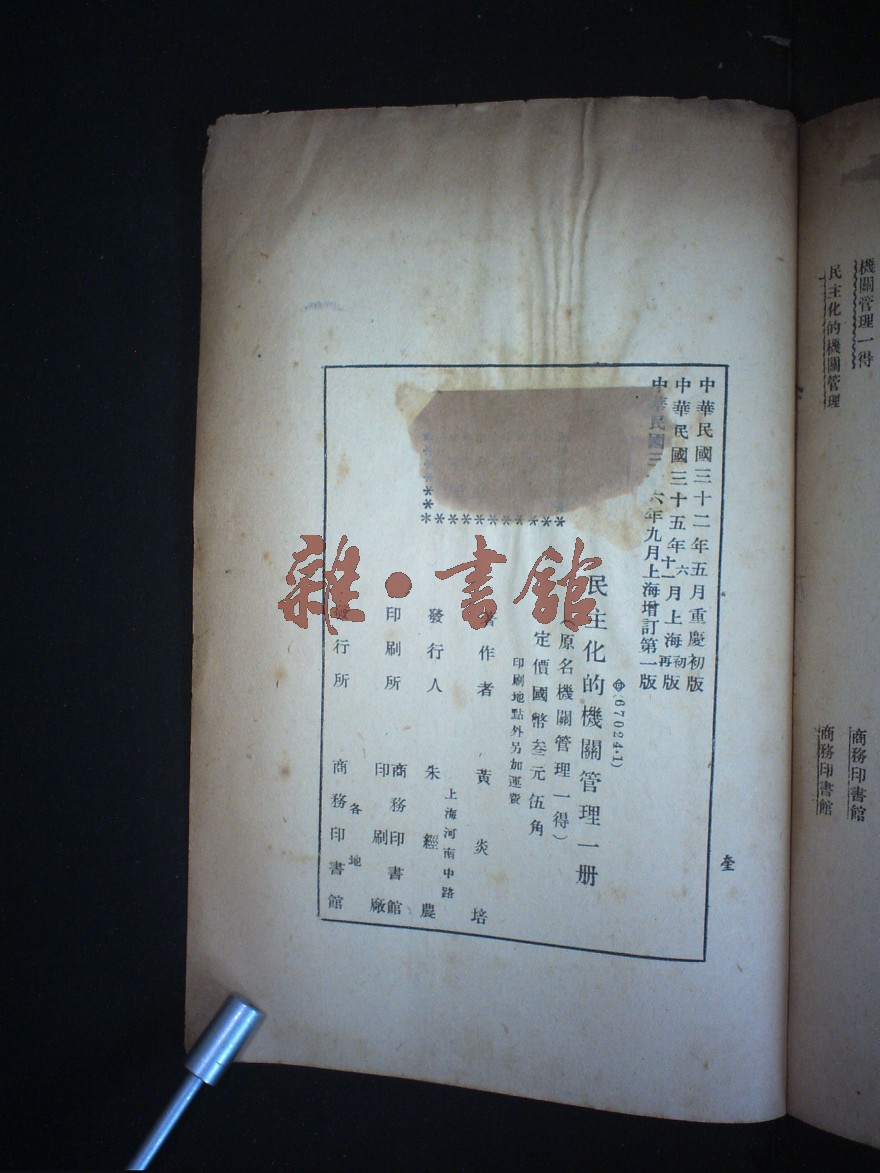 機關管理一得
商務印書館
民主化的機關管理
商務印書館
中華民國三十二年五月重慶初版
中華民國三十五年六月上海初版
十一月再版
中華民國三十六年九月上海增訂第一版
(67024·1)
民主化的機關管理一册
(原名機關管理一得)
定價國幣叁元伍角
印刷地點外另加運費
著作者 黃炎培
上海河南中路
發行人 朱經農
印刷所 商務印書館印刷廠
各地
發行所 商務印書館
雜·書館